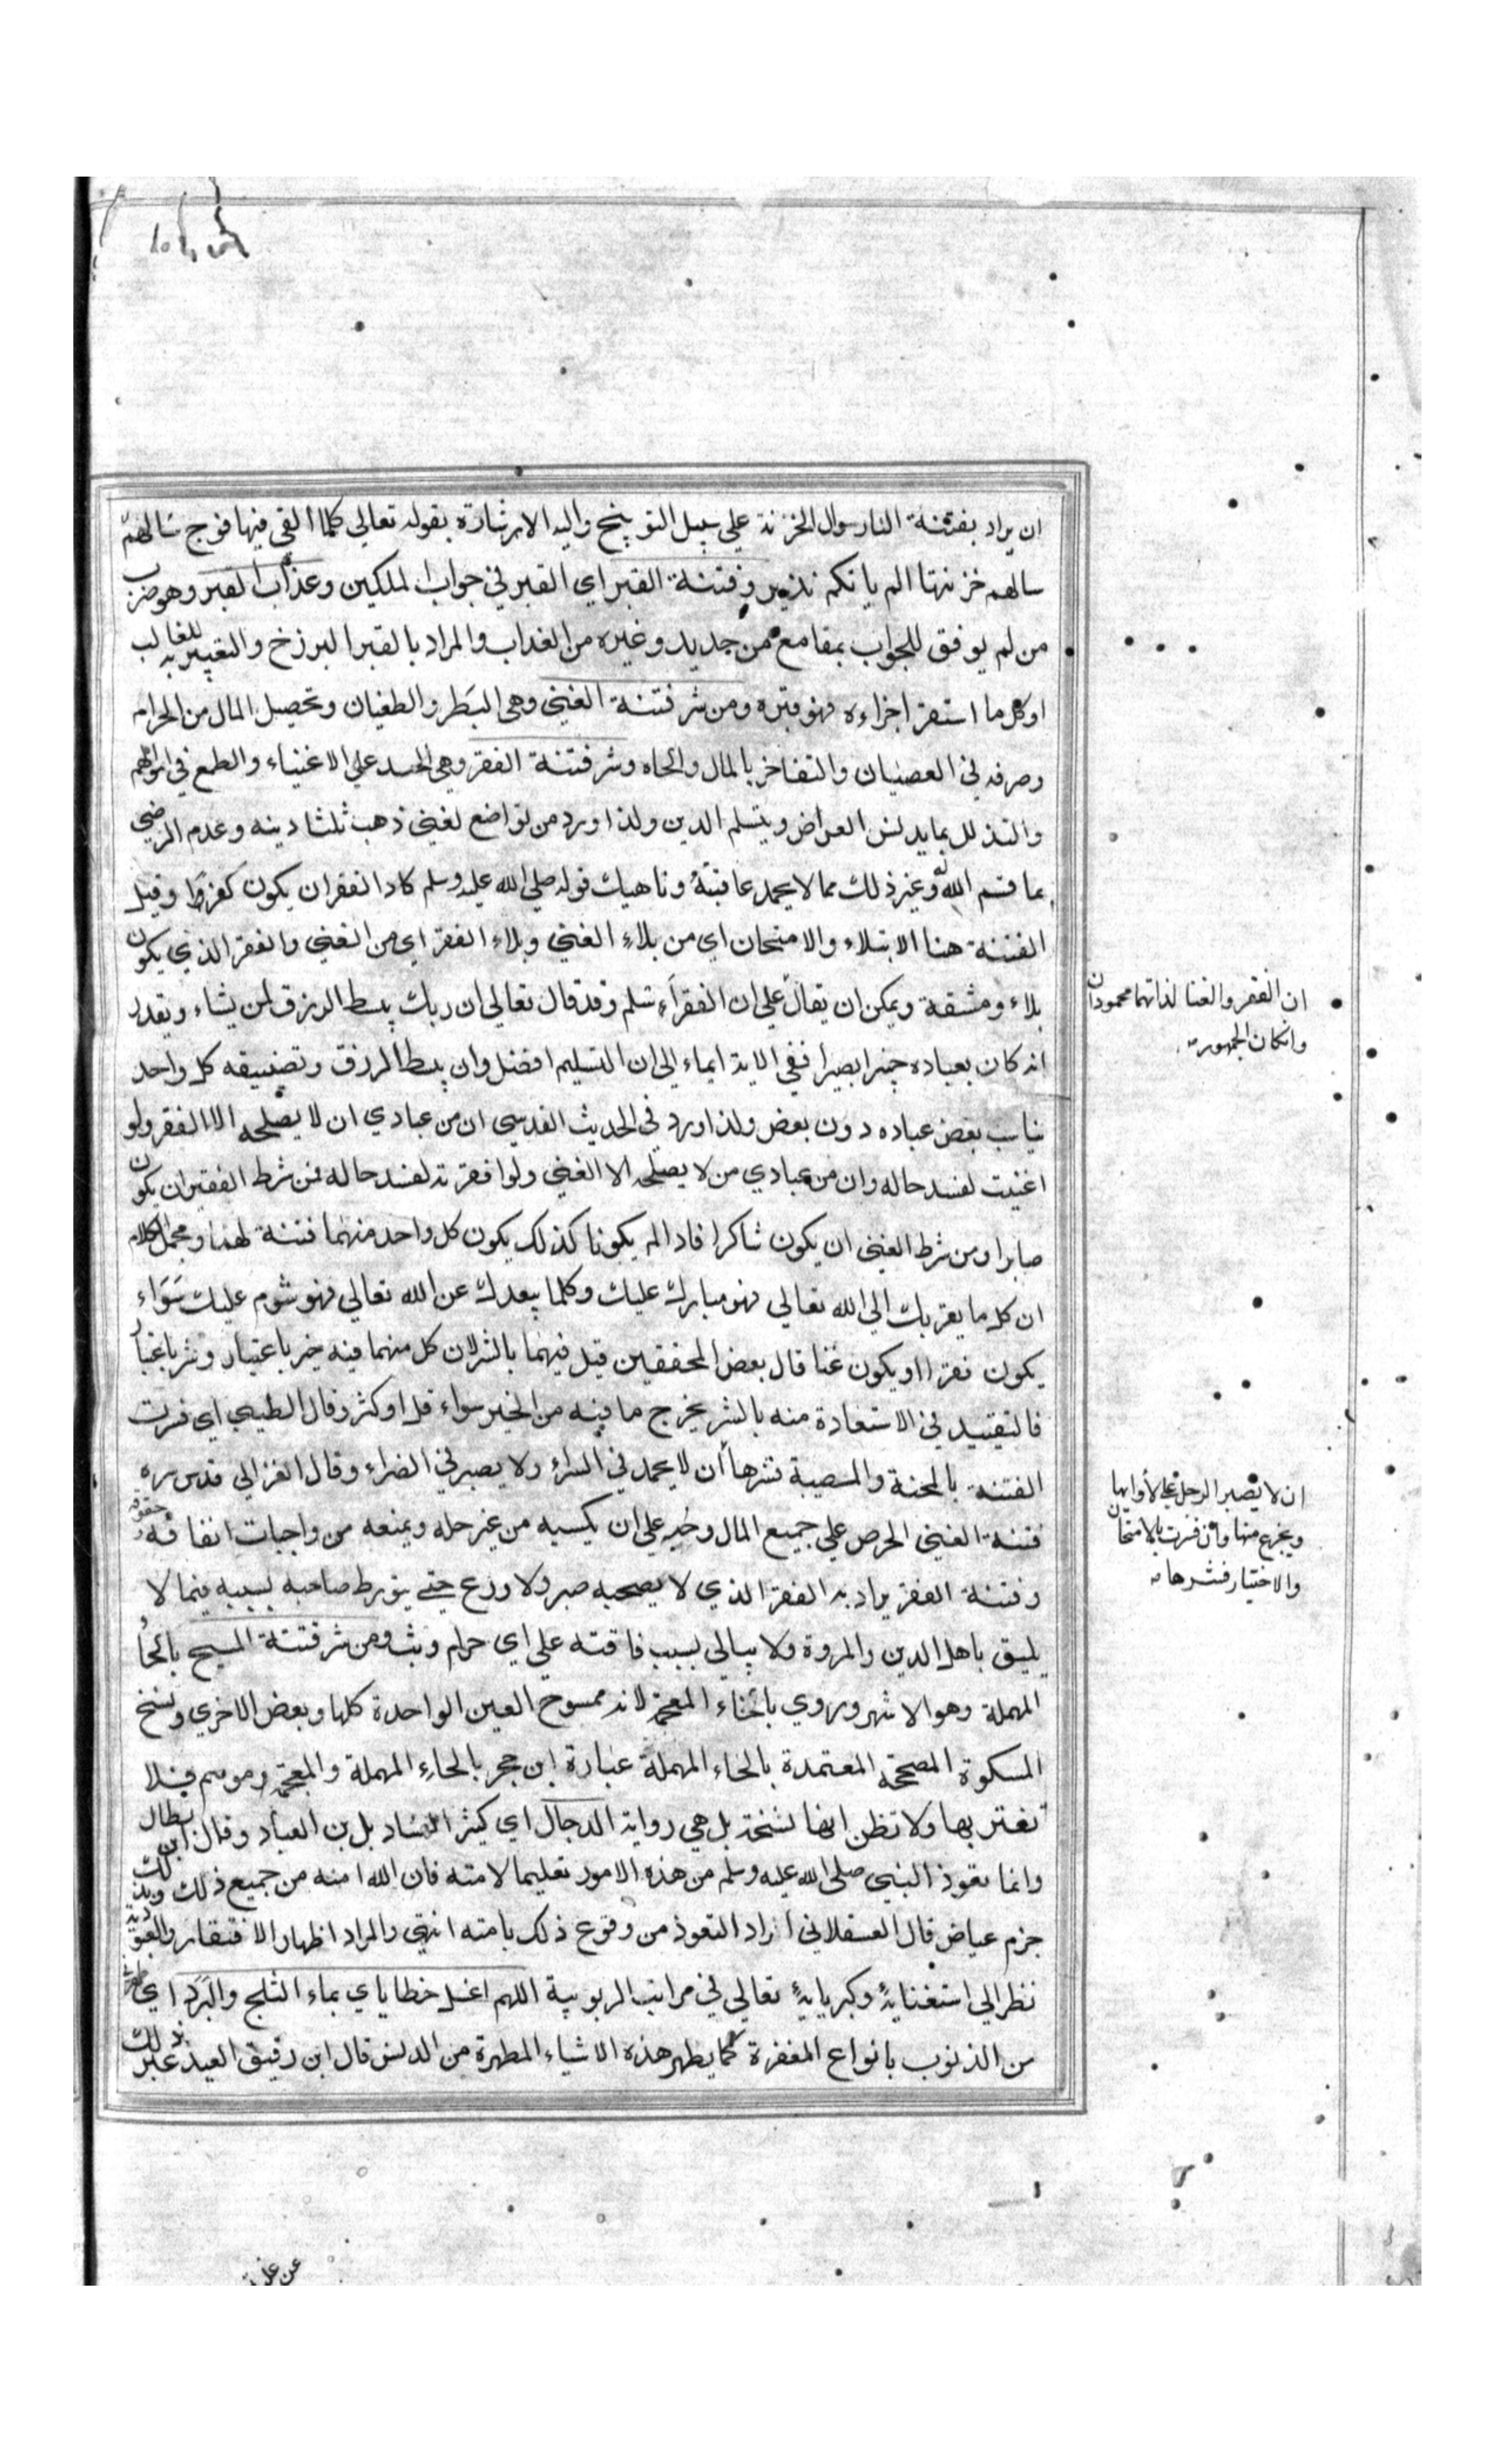 ان يراد بفتنة النار سوال الخزنة علي سبيل التوبيخ واليه الاشارة بقوله تعالي كلما القي فيها فوج سالهم
سالهم خزنتها الم ياتكم نذير وفتنة القبر اي القبر في جواب الملكين وعذاب القبر وهو ضرب
من لم يوفق للجواب بمقامع من حديد وغيره من العذاب والمراد بالقبر البرزخ والتعبير به للغالب
او كل ما استقر اجزاءه فهو قبره ومن شر فتنة الغني وهي البطر والطغيان وتحصيل المال من الحرام
وصرفه في العصيان والتفاخر بالمال والجاه وشر فتنة الفقر وهي الحسد علي الاغنياء والطمع في اموالهم
والتذلل بما يدنس العراض ويتسلم الدين ولذا ورد من تواضع لغني ذهب ثلثا دينه وعدم الرضي
بما قسم الله وغير ذلك مما لا يحمد عاقبته وناهيك قوله صلي الله عليه وسلم كاد الفقر ان يكون كفرا وقيل
الفتنة هنا الابتلاء والامتحان اي من بلاء الغني وبلاء الفقر اي من الغني والفقر الذي يكون
بلاء ومشقة ويمكن ان يقال علي ان الفقراء سلم وقد قال تعالي ان ربك يبسط الرزق لمن يشاء ويقدر
انه كان بعباده خبيرا بصيرا ففي الاية ايماء الي ان التسليم افضل وان بسط الرزق وتضييقه كل واحد
يناسب بعض عباده دون بعض ولذا ورد في الحديث القدسي ان من عبادي ان لا يصلحه الا الفقر ولو
اغنيت لفسد حاله وان من عبادي من لا يصلحه الا الغني ولو افقرته لفسد حاله فمن شرط الفقير ان يكون
صابرا ومن شرط الغني ان يكون شاكرا فاذا لم يكونا كذلك يكون كل واحد منهما فتنة لهما ومجمل الكلام
ان كل ما يقربك الي الله تعالي فهو مبارك عليك وكلما يبعدك عن الله تعالي فهو شوم عليك سواء
يكون فقرا او يكون غنا قال بعض المحققين قيل فيهما بالشر لان كل منهما فيه خير باعتبار وشر باعتبار
فالتقييد في الاستعاذة منه بالشر يخرج ما فيه من الخير سواء قل او كثر وقال الطيبي اي فسرت
الفتنة بالمحنة والمصيبة فشرها أن لا يحمد في السراء ولا يصبر في الضراء وقال الغزالي قدس سره
فتنة الغني الحرص علي جميع المال وحبه علي ان يكسبه من غير حله ويمنعه من واجبات انفاقه وحقوقه
وفتنة الفقر يراد به الفقر الذي لا يصحبه صبر ولا ورع حتي يتورط صاحبه بسببه فيما لا
يليق باهل الدين والمروة ولا يبالي بسبب فاقته علي اي حرام وثب ومن شر فتنة المسيح بالحاء
المهملة وهو الاشهر وروي بالخاء المعجمة لانه ممسوح العين الواحدة كلها وبعض الاخري ونسخ
المسكوة المصححة المعتمدة بالحاء المهملة عبارة ابن حجر بالحاء المهملة والمعجمة وموسم فلا
تغتر بها ولا تظن انها نسخة بل هي رواية الدجال اي كثير الفساد بل بن العباد وقال ابن بطال
وانما تعوذ النبي صلي الله عليه وسلم من هذه الامور تعليما لامته فان الله امنه من جميع ذلك وبذلك
جزم عياض قال العسقلاني اراد التعوذ من وقوع ذلك بامته انتهي والمراد اظهار الافتقار والعبودية
نظر الي استغنايه وكبريايه تعالي في مراتب الربوبية اللهم اغسل خطاياي بماء الثلج والبرد اي
من الذنوب بانواع المغفرة كما يطهر هذه الاشياء المطهرة من الدنس قال ابن دقيق العيد عبر بذلك
ان الفقر والغنا لذاتهما محمودان
وان كان الجمهور
ان لا يصبر الرجل علي لأوايها
ويجزع منها وان فسرت بالامتحان
والاختيار فشرها